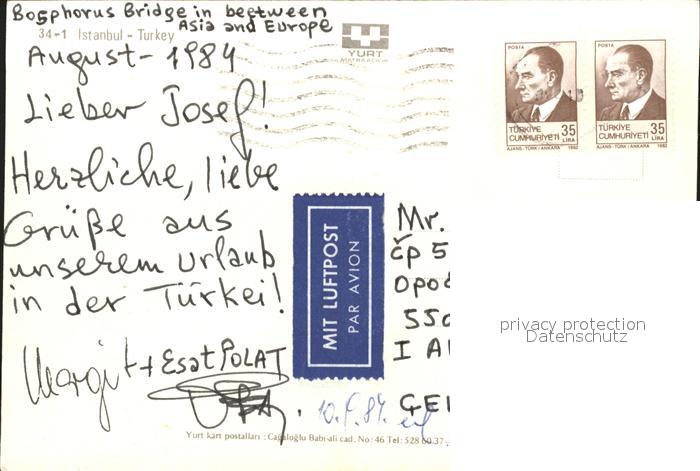 Bosphorus Bridge in beetween
Asia and Europe
34-1 Istanbul - Turkey
YURT
MATBAACILIK
August-1984
Lieber Josef!
Herzliche, liebe
Grüße aus
unserem Urlaub
in der Türkei!
Margit + Esat POLAT
MIT LUFTPOST
PAR AVION
POSTA
TÜRKİYE
CUMHURİYETİ
35
LİRA
AJANS-TÜRK/ANKARA 1982
POSTA
TÜRKİYE
CUMHURİYETİ
35
LİRA
AJANS-TÜRK/ANKARA 1982
Mr.
čp 5
Opoč
I
privacy protection
Datenschutz
Yurt kart postalları : Cağaloğlu Babı-ali cad. No: 46 Tel: 528 60 37-